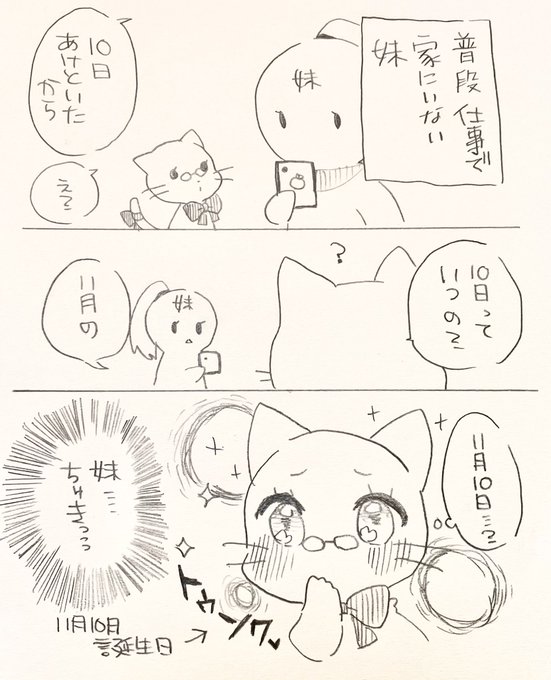 普段仕事で
家にいない
妹
妹
10日
あけといた
から
え？
10日って
いつの？
？
妹
11月の
11月10日…？
妹…
ちゅきっっ
トゥンク
11月10日
誕生日